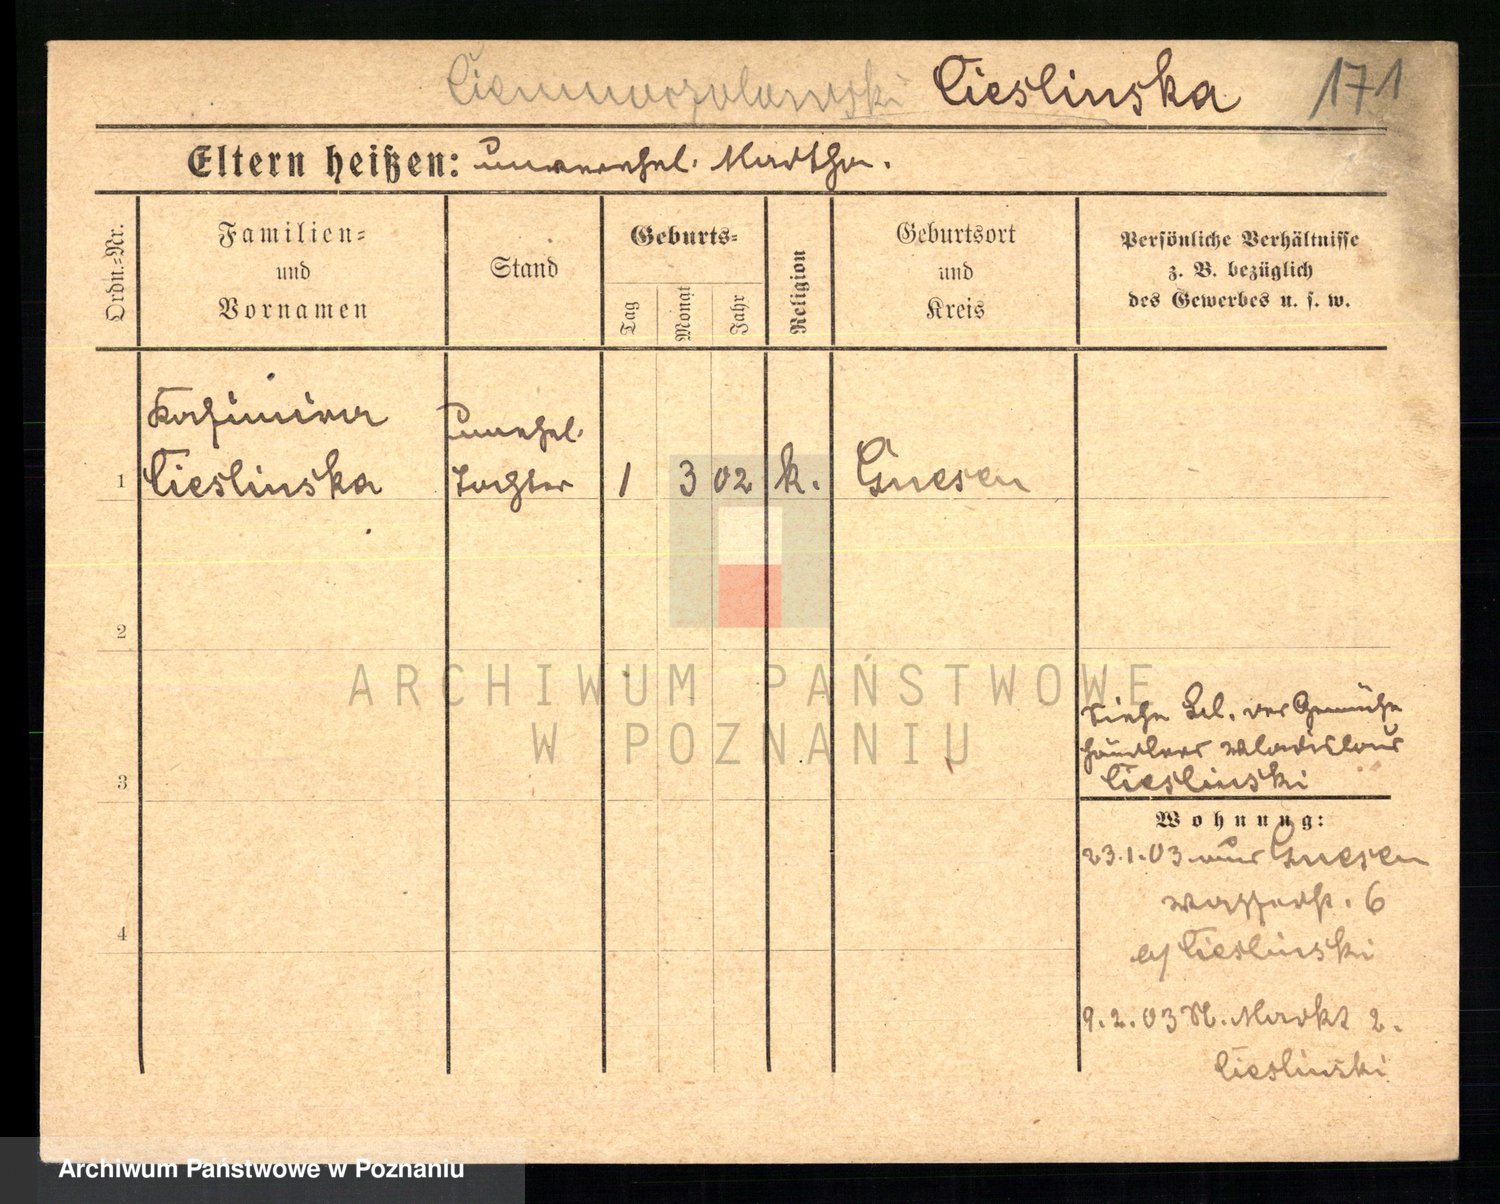 Cieslinska 171
Eltern heißen: unverehel. Martha.
Ordn.-Nr.
Familien-
und
Vornamen
Stand
Geburts-
Tag
Monat
Jahr
Religion
Geburtsort
und
Kreis
Persönliche Verhältnisse
z. B. bezüglich
des Gewerbes u. s. w.
Kasimira unehel.
1 Cieslinska Tochter 1 3 02 k. Gnesen
2
3
4
Siehe Bl. des Gemüse
händlers Wladislaus
Cieslinski
Wohnung:
23.1.03 aus Gnesen
Wasserst. 6
b/ Cieslinski
9.2.03 N. Markt 2.
Cieslinski
ARCHIWUM PAŃSTWOWE
W POZNANIU
Archiwum Państwowe w Poznaniu